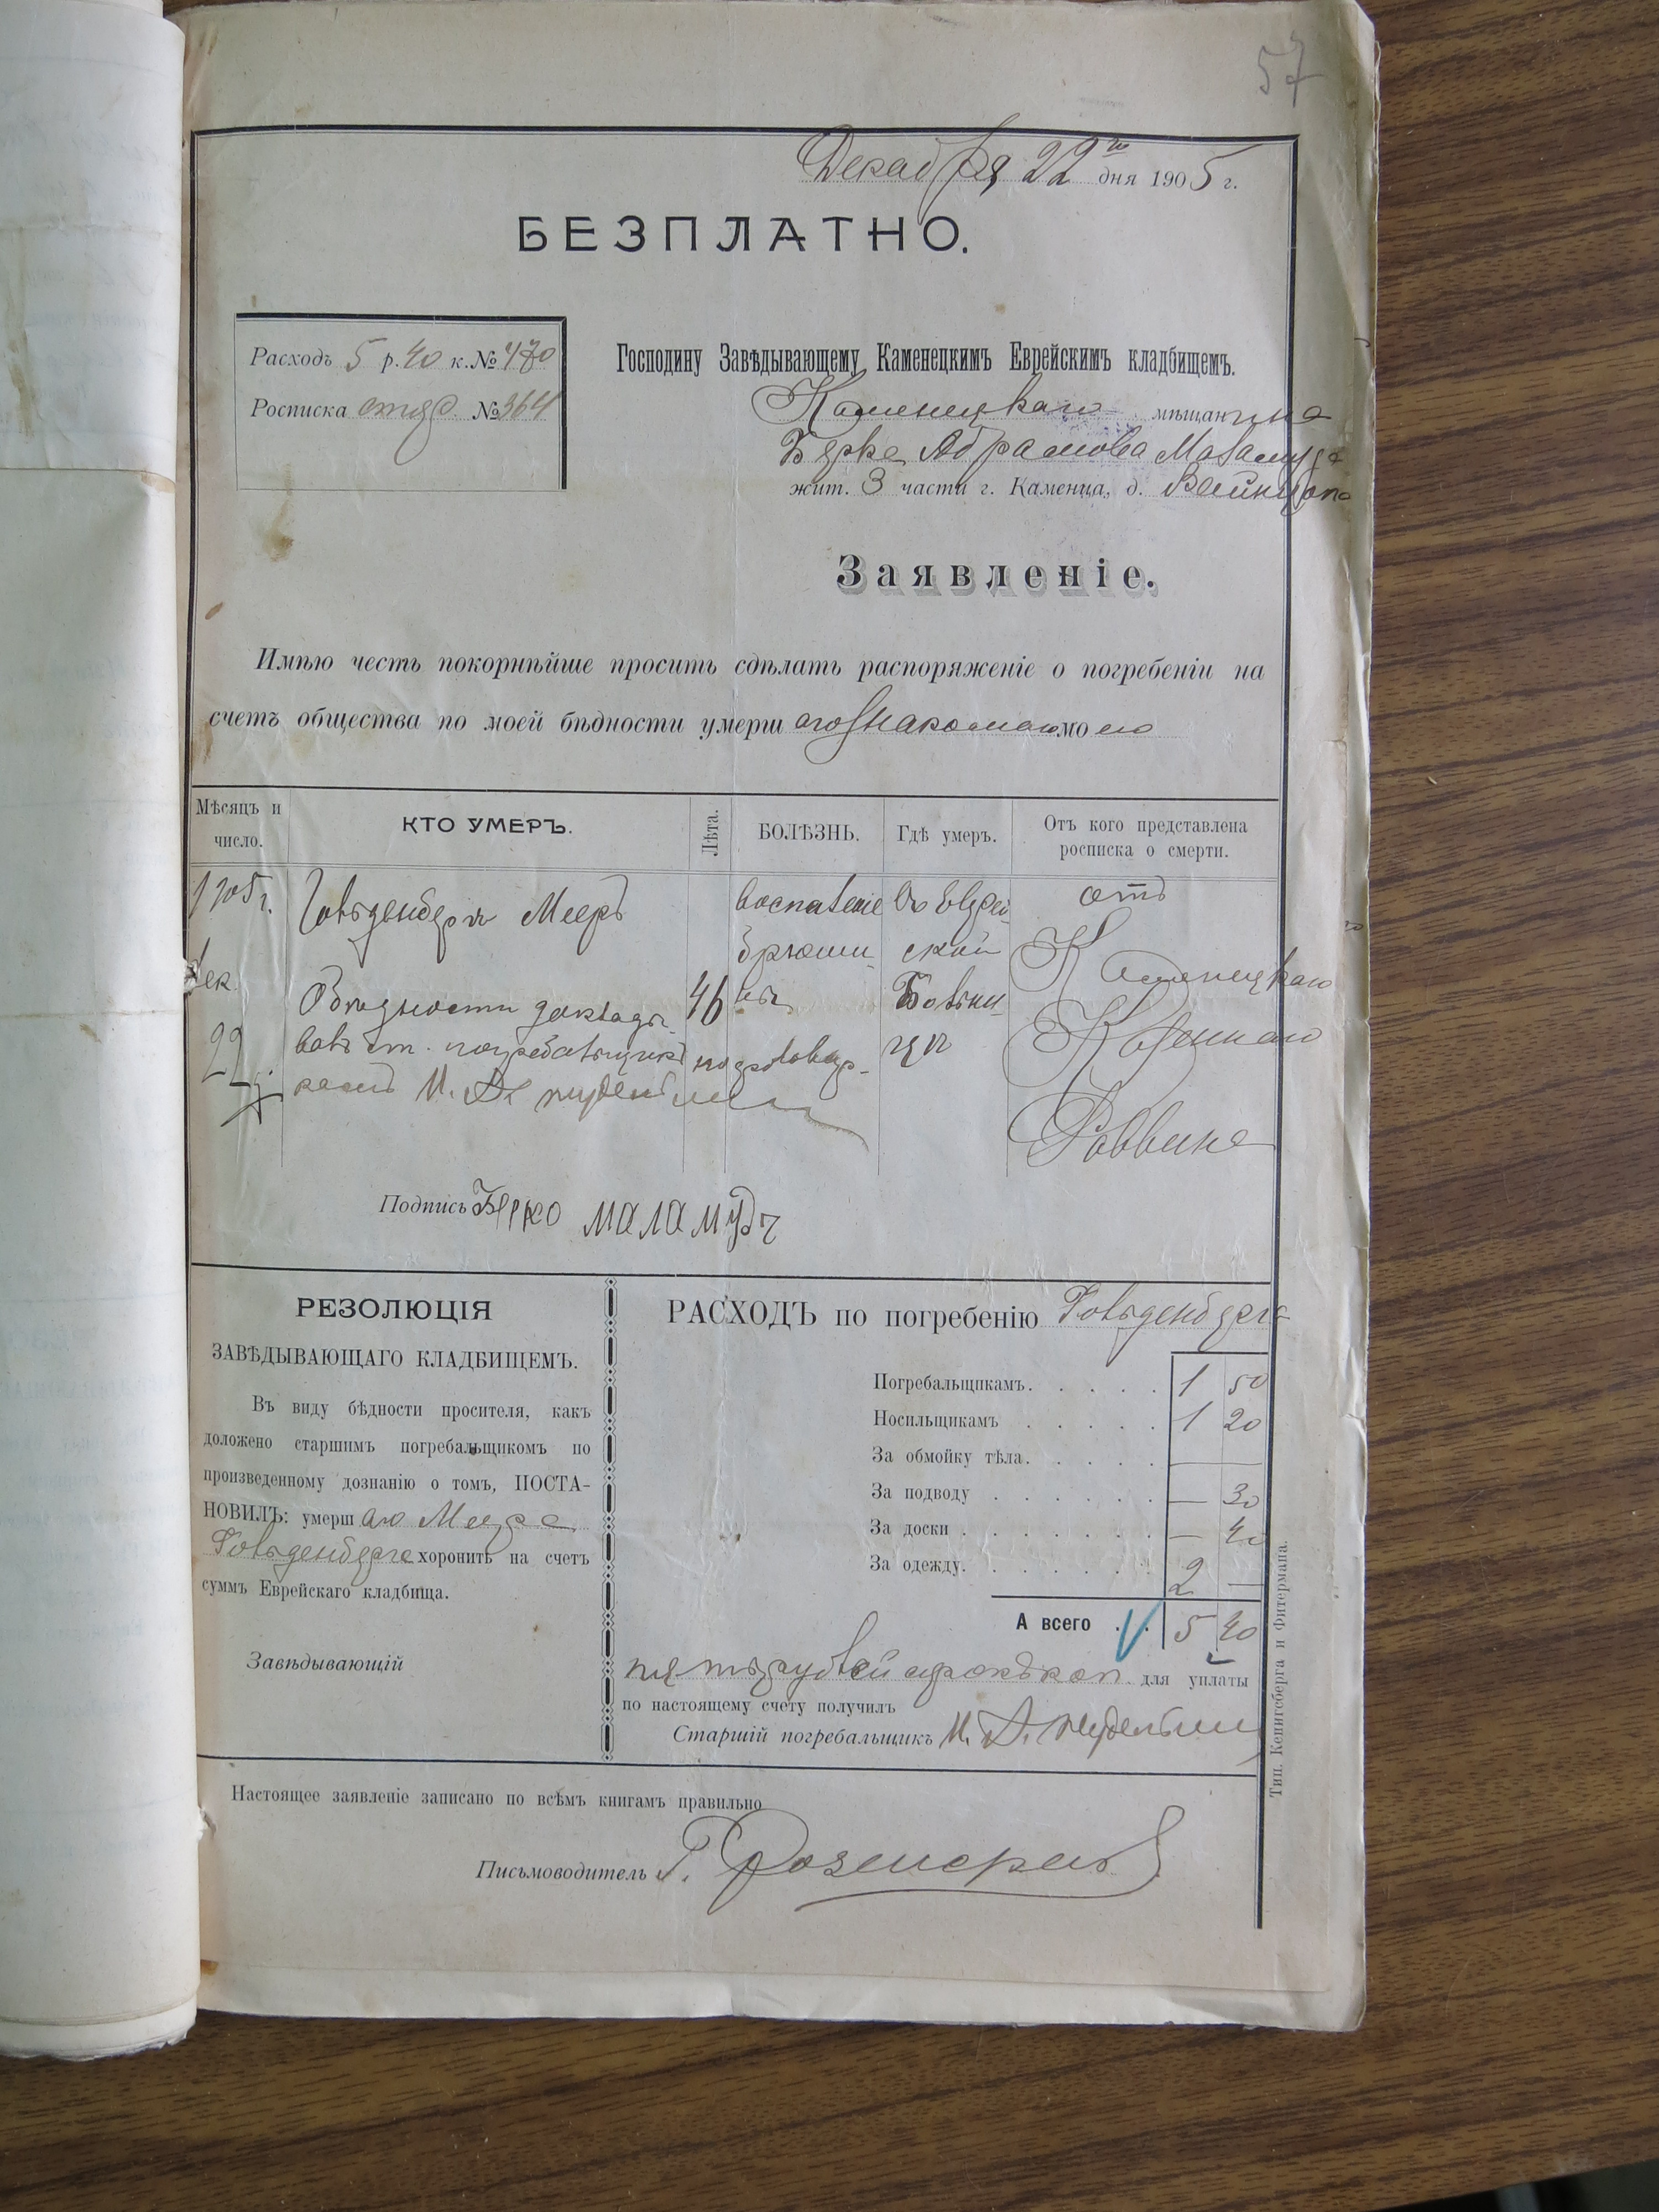 57
Декабря 22го дня 1905 г.
БЕЗПЛАТНО.
Расходъ 5 р. 40 к. № 470
Росписка №364
Господину Завѣдывающему Каменецкимъ Еврейскимъ кладбищемъ.
Каменецкаго мѣщанина
Берка Абрамова Маламуда
жит. 3 части г. Каменца, д.
Заявленіе.
Имѣю честь покорнѣйше просить сдѣлать распоряженіе о погребеніи на
счетъ общества по моей бѣдности умерш аго знакомаго мо его
Мѣсяцъ и число.
КТО УМЕРЪ.
Лѣта.
БОЛѢЗНЬ.
Гдѣ умеръ.
Отъ кого представлена росписка о смерти.
1905 г.
Дек.
22
Гольденбергъ Мееръ
О бѣдности доклады-
валъ ст. погребальщикъ
46
воспаленіе
брюши-
ны
въ Еврей-
ской
Больни-
цѣ
отъ
Каменецкаго
Казеннаго
Раввина
Подпись Берко Маламудъ
РЕЗОЛЮЦІЯ
ЗАВѢДЫВАЮЩАГО КЛАДБИЩЕМЪ.
Въ виду бѣдности просителя, какъ
доложено старшимъ погребальщикомъ по
произведенному дознанію о томъ, ПОСТА-
НОВИЛЪ: умерш аго Меера
Гольденберга хоронить на счетъ
суммъ Еврейскаго кладбища.
Завѣдывающій
РАСХОДЪ по погребенію Гольденберга
Погребальщикамъ. . . . . 1 50
Носильщикамъ . . . . . 1 20
За обмойку тѣла. . . . . —
За подводу . . . . . . — 30
За доски . . . . . . . — 40
За одежду. . . . . . . 2 —
А всего . . 5 40
пять рублей сорокъ коп. для уплаты
по настоящему счету получилъ
Старшій погребальщикъ И.
Настоящее заявленіе записано по всѣмъ книгамъ правильно
Письмоводитель Г.
Тип. Кенигсберга и Фитермана.